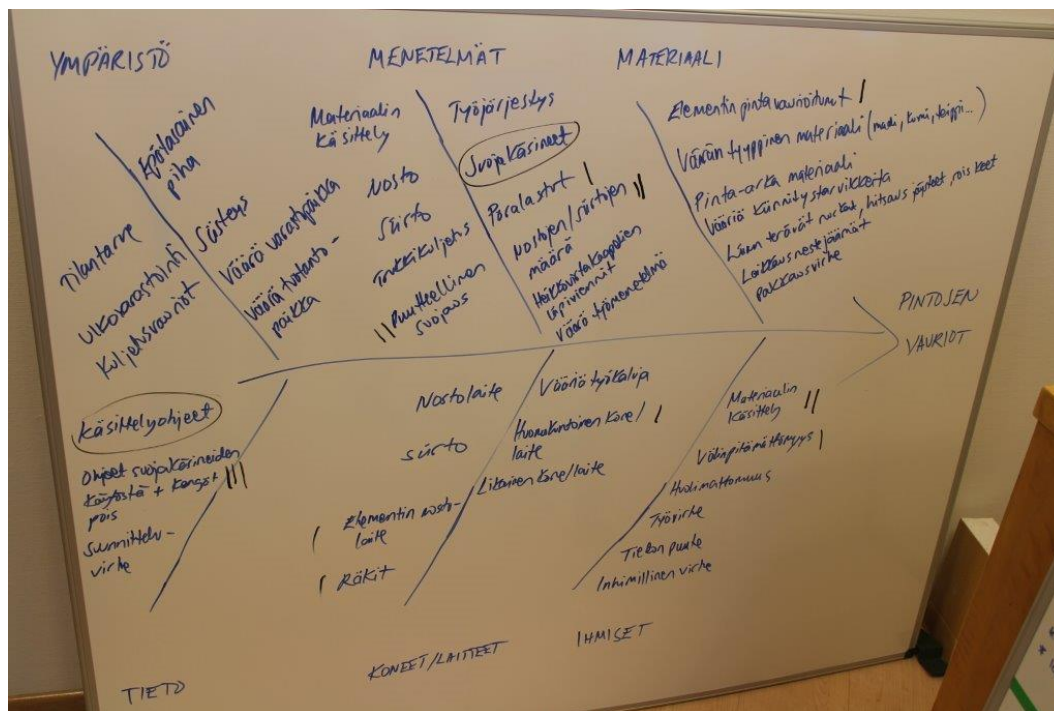 YMPÄRISTÖ
Epätasainen
piha
Tilantarve
Ulkovarastointi
Kuljetusvauriot
Siisteys
Väärä varastopaikka
Väärä tuotanto-
paikka
MENETELMÄT
Materiaalin
käsittely
Nosto
Siirto
Trukkikuljetus
Puutteellinen
suojaus
Työjärjestys
Suojakäsineet
Poralastut
Nostojen/siirtojen
määrä
läpiviennit
Väärä työmenetelmä
MATERIAALI
Elementin pinta vaurioitunut
Väärän tyyppinen materiaali (maali, kumi, teippi...)
Pinta-arka materiaali
Vääriä kiinnitystarvikkeita
Liian terävät nurkat, hitsausjäysteet, roiskeet
Leikkausnestejäämät
Pakkausvirhe
PINTOJEN
VAURIOT
Käsittelyohjeet
Ohjeet suojakäsineiden
käytöstä + kengät
pois
Suunnittelu-
virhe
TIETO
Nostolaite
Siirto
Elementin nosto-
laite
Räkit
Vääriä työkaluja
Huonokuntoinen kone/
laite
Likainen kone/laite
KONEET/LAITTEET
Materiaalin
käsittely
Välinpitämättömyys
Huolimattomuus
Työvirhe
Tiedon puute
Inhimillinen virhe
IHMISET